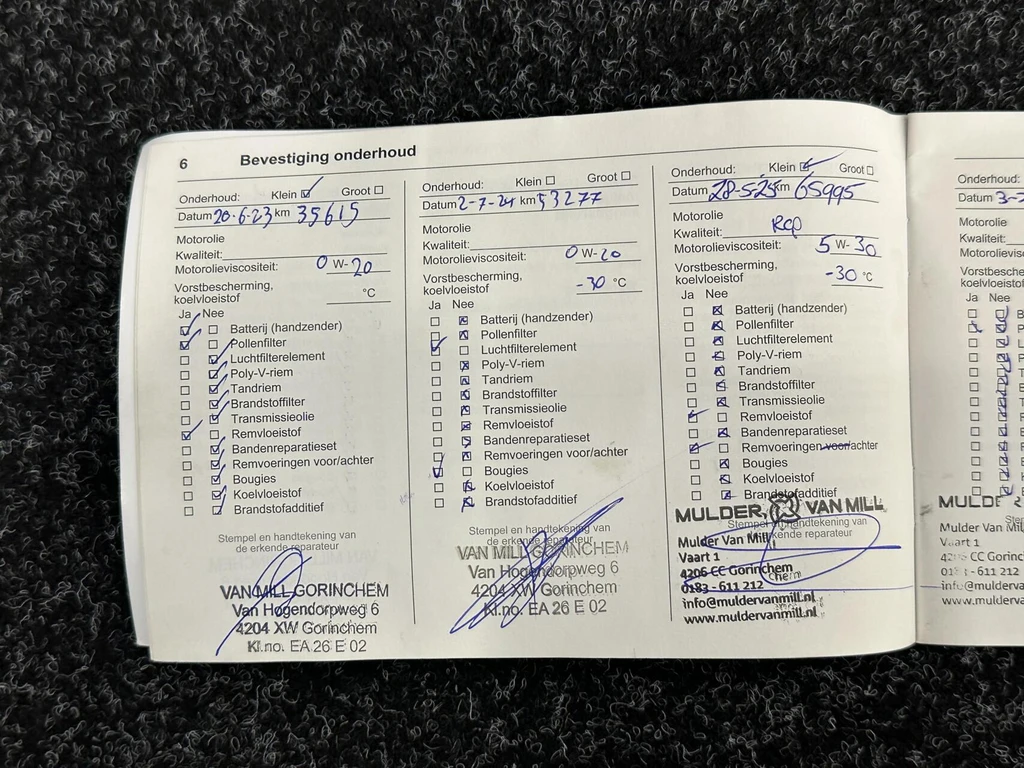 6 Bevestiging onderhoud
Onderhoud: Klein Groot
Datum 20-6-23 km 35615
Motorolie
Kwaliteit:
Motorolieviscositeit: 0 W-20
Vorstbescherming,
koelvloeistof °C
Ja Nee
Batterij (handzender)
Pollenfilter
Luchtfilterelement
Poly-V-riem
Tandriem
Brandstoffilter
Transmissieolie
Remvloeistof
Bandenreparatieset
Remvoeringen voor/achter
Bougies
Koelvloeistof
Brandstofadditief
Stempel en handtekening van
de erkende reparateur
VAN MILL GORINCHEM
Van Hogendorpweg 6
4204 XW Gorinchem
Kl.no. EA 26 E 02
Onderhoud: Klein Groot
Datum 2-7-24 km 53277
Motorolie
Kwaliteit:
Motorolieviscositeit: 0 W-20
Vorstbescherming,
koelvloeistof -30 °C
Ja Nee
Batterij (handzender)
Pollenfilter
Luchtfilterelement
Poly-V-riem
Tandriem
Brandstoffilter
Transmissieolie
Remvloeistof
Bandenreparatieset
Remvoeringen voor/achter
Bougies
Koelvloeistof
Brandstofadditief
Stempel en handtekening van
de erkende reparateur
VAN MILL GORINCHEM
Van Hogendorpweg 6
4204 XW Gorinchem
Kl.no. EA 26 E 02
Onderhoud: Klein Groot
Datum 28-5-25 km 65995
Motorolie
Kwaliteit:
Motorolieviscositeit: 5 W-30
Vorstbescherming,
koelvloeistof -30 °C
Ja Nee
Batterij (handzender)
Pollenfilter
Luchtfilterelement
Poly-V-riem
Tandriem
Brandstoffilter
Transmissieolie
Remvloeistof
Bandenreparatieset
Remvoeringen voor/achter
Bougies
Koelvloeistof
Brandstofadditief
MULDER VAN MILL
Stempel en handtekening van
erkende reparateur
Mulder Van Mill
Vaart 1
4206 CC Gorinchem
0183-611 212
info@muldervanmill.nl
www.muldervanmill.nl
Onderhoud:
Datum
Motorolie
Kwaliteit:
Ja Nee
Mulder Van
Vaart 1